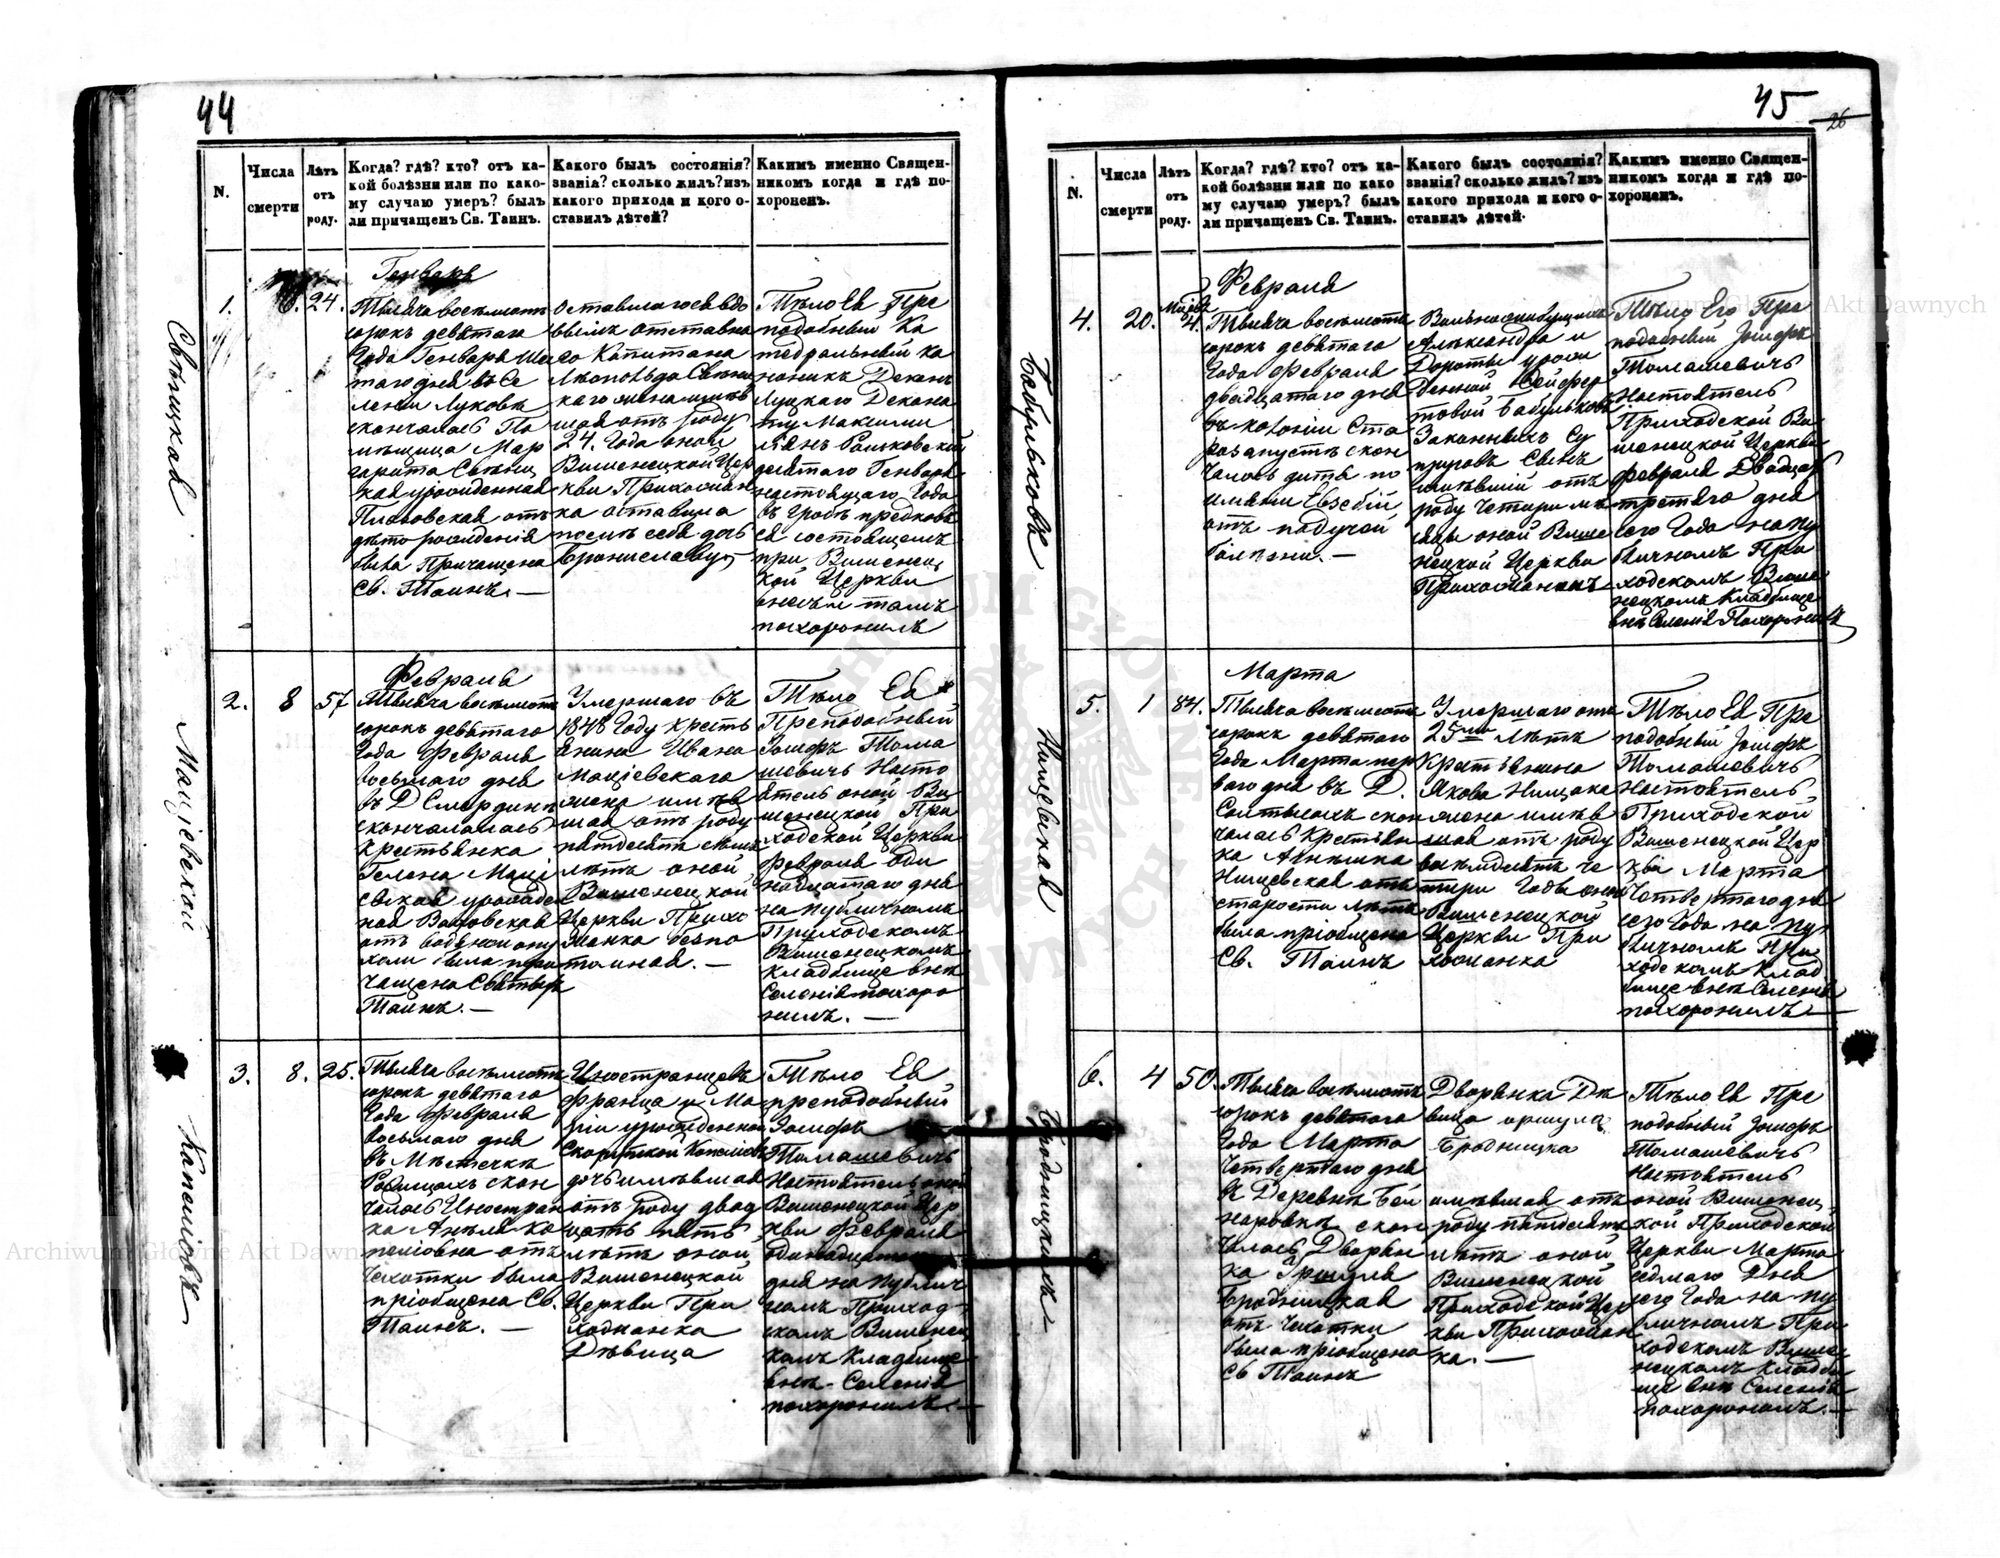 44
N.
Числа смерти
Лѣтъ отъ роду.
Когда? гдѣ? кто? отъ ка-
кой болѣзни или по како-
му случаю умеръ? былъ
ли причащенъ Св. Таинъ.
Какого былъ состоянія?
званія? сколько жилъ? изъ
какого прихода и кого о-
ставилъ дѣтей?
Какимъ именно Священ-
никомъ когда и гдѣ по-
хороненъ.
Свѣницкая
1.
6.
24.
Генваря
Тысяча восемьсотъ
сорокъ девятаго
Года Генваря Шес
таго дня въ Се
леніи Луковѣ
скончалась По
мѣщица Мар
гарита Свѣниц
кая урожденная
отъ
дѣторожденія
была Причащена
Св. Таинъ. —
Оставшагося вдо
вымъ отставна
го Капитана
Леопольда Свѣниц
каго жена имѣв
шая отъ роду
24. Года оной
Вишенецкой Цер
кви Прихожан
ка оставила
послѣ себя дочь
Брониславу
Тѣло Ея Пре
подобный Ка
тедральный ка
ноникъ Деканъ
Луцкаго Декана
ту Максими
ліянъ
девятаго Генваря
настоящаго Года
въ гробѣ предковъ
ея состоящемъ
при Вишенец
кой Церкви
тамъ
похоронилъ
Маціевской
2.
8
57
Февраля
Тысяча восемьсотъ
сорокъ девятаго
Года Февраля
восьмаго дня
въ Д Смердинѣ
скончалась
крестьянка
Гелена Маціе
евская урожден
ная
отъ водяной опу
холи была при
чащена Святыхъ
Таинъ. —
Умершаго въ
1848 Году кресть
янина Ивана
Маціевскаго
жена имѣв
шая отъ роду
пятдесятъ семь
лѣтъ оной
Вишенецкой
Церкви Прихо
жанка безпо
томная. —
Тѣло Ея
Преподобный
Іосифъ Тома
шевичь Насто
ятель оной Ви
шенецкой При
ходской Церкви
Февраля оди
надцатаго дня
на публичномъ
Приходскомъ
Вишенецкомъ
кладбище внѣ
Селенія похоро
нилъ. —
Капеліовъ
3.
8.
25.
Тысяча восемьсотъ
сорокъ девятаго
Года Февраля
восьмаго дня
въ Мѣстечкѣ
Рожищахъ скон
чалась Иностран
ка Анеля Ка
пеліовна отъ
Чахотки была
пріобщена Св.
Таинъ. —
Иностранцевъ
Франца и Ма
ріи урожденной
дочь имѣвшая
отъ роду двад
цать пять
лѣтъ оной
Вишенецкой
Церкви При
хожанка
Дѣвица
Тѣло Ея
преподобный
Іосифъ
Томашевичь
Настоятель оной
Вишенецкой Цер
кви Февраля
одинадцатаго
дня на публич
номъ Приход
скомъ Вишенец
комъ Кладбище
внѣ Селенія
похоронилъ. —
45
26
N.
Числа смерти
Лѣтъ отъ роду.
Когда? гдѣ? кто? отъ ка-
кой болѣзни или по како
му случаю умеръ? былъ
ли причащенъ Св. Таинъ.
Какого былъ состоянія?
званія? сколько жилъ? изъ
какого прихода и кого о-
ставилъ дѣтей?
Какимъ именно Священ-
никомъ когда и гдѣ по-
хороненъ.
Бабульковъ
4.
20.
4.
Февраля
Тысяча восемьсотъ
сорокъ девятаго
Года Февраля
двадцатаго дня
въ колоніи Ста
розапустъ скон
чалось дитя по
имени Евзебій
отъ падучей
болѣзни. —
Александра и
Дороты урож
денной Сейфер
товой Бабульковъ
Законныхъ Су
пруговъ Сынъ
имѣвшій отъ
роду четыри мѣ
сяцы оной Више
нецкой Церкви
Прихожанинъ
Тѣло Его Пре
подобный Іосифъ
Томашевичь
Настоятель
Приходской Ви
шенецкой Церкви
Февраля Двадцать
третяго дня
сего Года на пу
бличномъ При
ходскомъ Више
нецкомъ Кладбище
внѣ Селенія Похоронилъ
Нищевская
5.
1
84.
Марта
Тысяча восемьсотъ
сорокъ девятаго
Года Марта пер
ваго дня въ Д.
Солтысахъ скон
чалась Крестьян
ка Агнѣшка
Нищевская отъ
старости лѣтъ
была пріобщена
Св. Таинъ
Умершаго отъ
25ти лѣтъ
Крестьянина
Якова Нищока
жена имѣв
шая отъ роду
восемдесятъ че
тыри Годы оной
Вишенецкой
Церкви При
хожанка
Тѣло Ея Пре
подобный Іосифъ
Томашевичь
Настоятель
Приходской
Вишенецкой Цер
кви Марта
Четвертаго дня
сего Года на пу
бличномъ При
ходскомъ Клад
бище внѣ Селенія
похоронилъ —
Бродницкихъ
6.
4
50.
Тысяча восемьсотъ
сорокъ девятаго
Года Марта
Четвертаго дня
въ Деревнѣ Бей
наровкѣ скон
чалась Дворян
ка Уршуля
Бродницкая
отъ Чахотки
была пріобщена
Св Таинъ
Дворянка Дѣ
вица Оршуля
Бродницка
имѣвшая отъ
роду пятдесятъ
лѣтъ оной
Вишенецкой
Приходской Цер
кви Прихожан
ка. —
Тѣло Ея Пре
подобный Іосифъ
Томашевичь
Настоятель
оной Вишенец
кой Приходской
Церкви Марта
седмаго Дня
сего Года на пу
бличномъ При
ходскомъ Више
нецкомъ Кладби
ще внѣ Селенія
похоронилъ. —
Archiwum Główne Akt Dawnych
Archiwum Główne Akt Dawnych